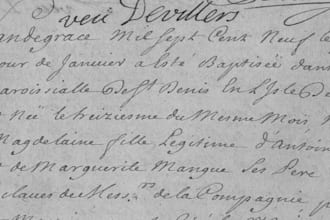 veu Devillers
andegrace Mil Sept Cent Neuf le
our de Janvier a Este Baptisée dans
aroissialle De St Denis En L'Isle De
Née le treiziesme du Mesme Mois
Magdelaine fille Legitime d'Antoin
de Marguerite Mangue Ses Pere
claves de Mess.rs de la Compagnie